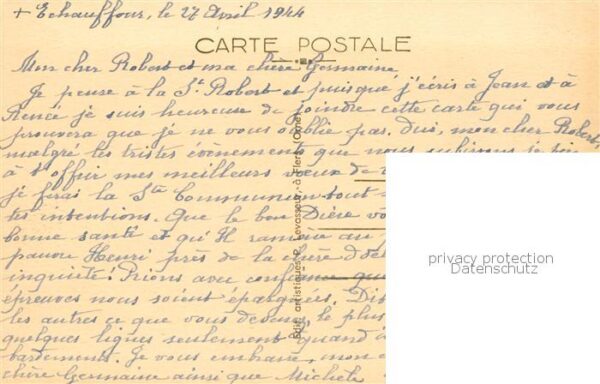 + Echauffour, le 27 Avril 1944
CARTE POSTALE
Mon cher Robert et ma chère Germaine
Je pense à la St Robert et puisque j'écris à Jean et à
Renée je suis heureuse de joindre cette carte qui vous
prouvera que je ne vous oublie pas. Oui, mon cher Robert,
malgré les tristes évènements que nous subissons je
à t'offrir mes meilleurs vœux de
je ferai la Ste Communion tout
tes intentions. Que le bon Dieu vo
bonne santé et qu'Il ramène au
pauvre Henri près de la
inquiète! Prions avec confiance que
épreuves nous soient épargnées.
les autres ce que vous devenez, le plus
quelques lignes seulement quand
bardements. Je vous embrasse, mon
chère Germaine ainsi que Michele
Edit. artistiques Levasseur, à Flers (Orne)
privacy protection
Datenschutz